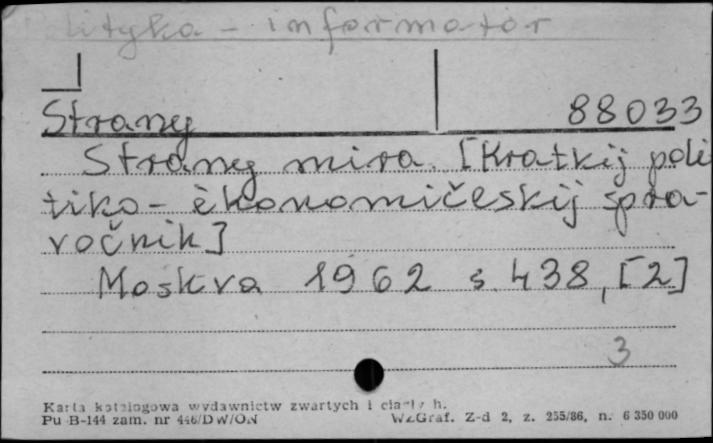 lityka - informator
Strany 88033
Strany mira. [Kratkij poli
tiko-èkonomičeskij spra-
vočnik]
Moskva 1962 s. 438, [2]
3
Karta katalogowa wydawnictw zwartych i ciągłych.
Pu B-144 zam. nr 446/DW/ON WZGraf. Z-d 2, z. 255/86, n. 6 350 000